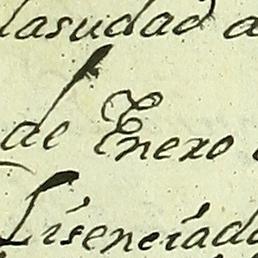 lasudad a
de Enero
Lisenciado